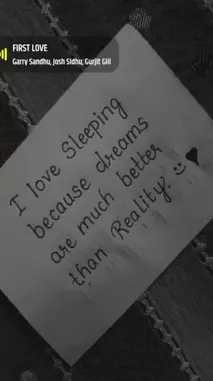 FIRST LOVE
Garry Sandhu, Josh Sidhu, Gurjit Gill
I love Sleeping
because dreams
are much better
than Reality.